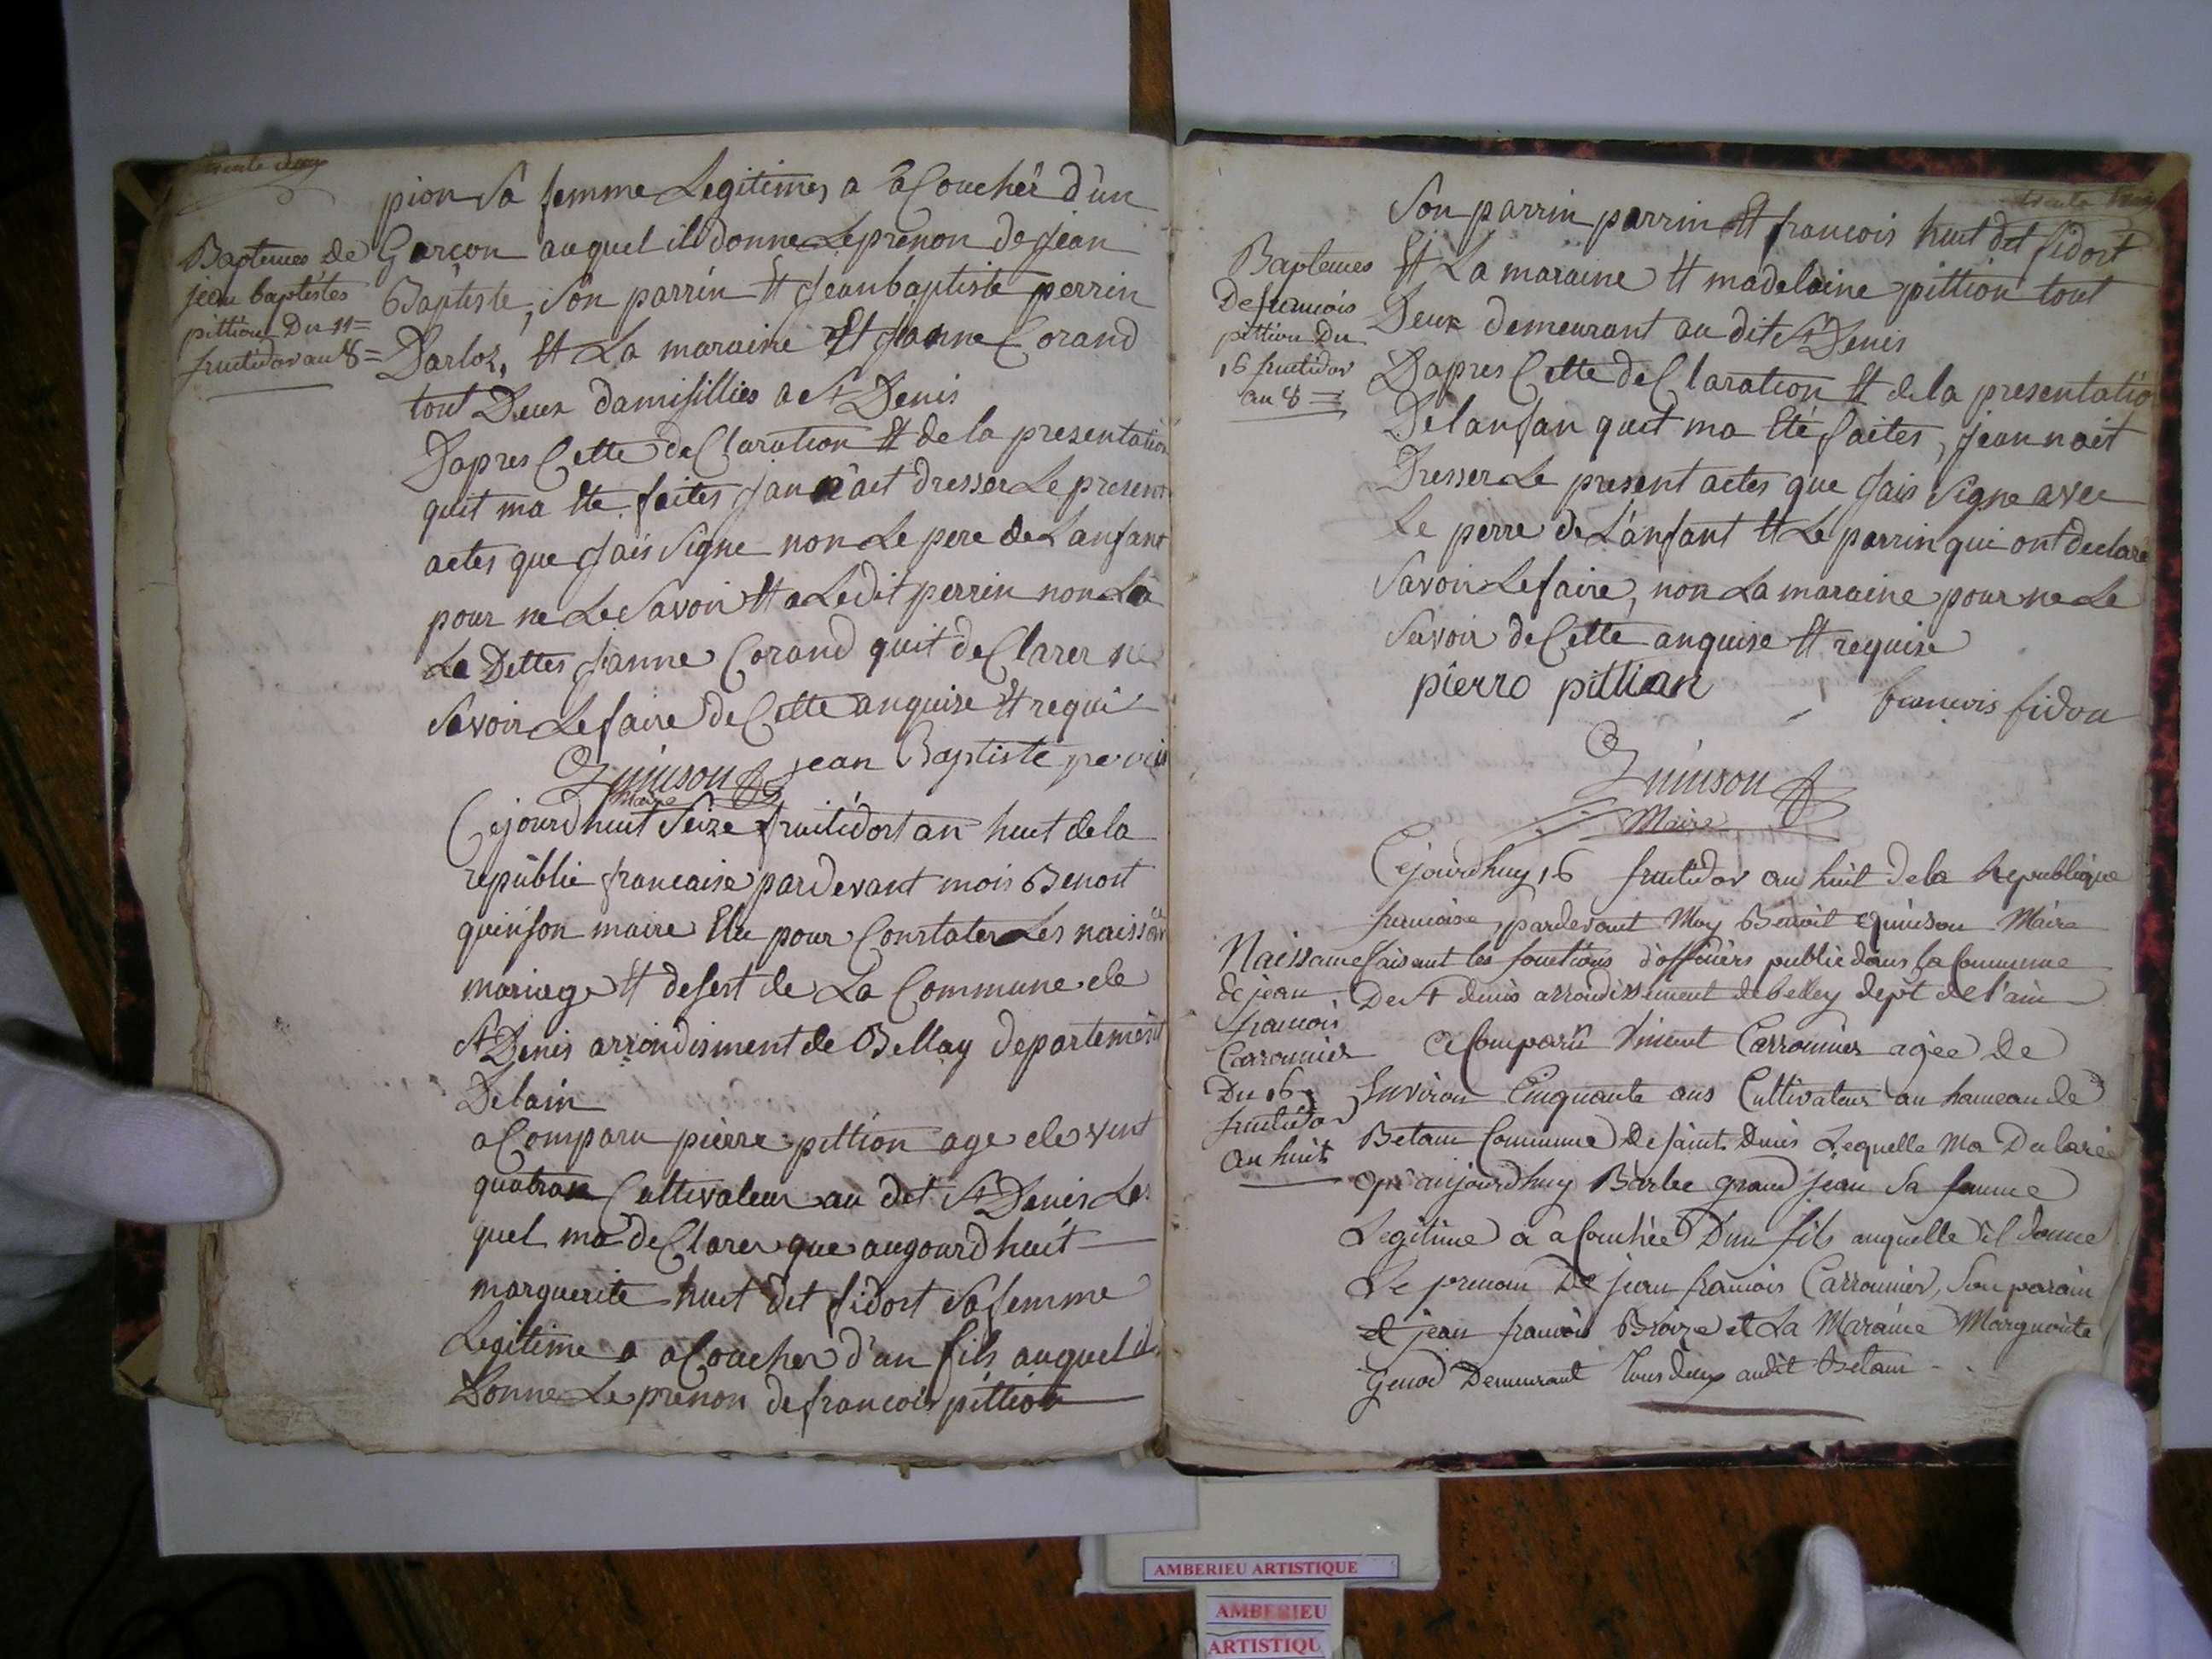 trente deux
pion Sa femme Legitimes a acouchér d'un
Baptemes de
jean baptistes
pittion Du 11=
fructidor an 8=
Garcon auquel il donne Le prenon de Jean
Baptiste, Son parrin Et Jean baptiste perrin
Darloz, Et La maraine Et Janne Corand
tout Deux damisillies a St Denis
Dapres Cette deClaration Et de la presentation
quit ma Ete faites Jan ait dresser Le present
actes que Jais Signe non Le pere de Lanfant
pour ne Le Savoir Et a Ledit perrin non La
La Dittes Janne Corand quit deClarer ne
Savoir Le faire de Cette anquise Et requi
Quinson jean Baptiste perrin
Maire
Cejourdhuit Seize fruitidort an huit de la
republie francaise pardevant mois Benoit
quinson maire Elu pour Constater Les naissan
mariage Et desert de La Commune de
St Denis arrondisment de Bellay departement
Delain
aComparu pierre pittion age de vint
quatran Cultivateur au dit St Denis Le
quel ma deClarer que augourdhuit
marguerite huit dit fidort Sa femme
Legitime a aCoucher d'un fils auquel il
Donne Le prenon de francois pittion
trente trois
Son parrin parrin Et francois huit dit fidort
Baptemes
De francois
pittion Du
16 fructidor
an 8=
Et La maraine Et madelaine pittion tout
Deux demeurant au dit St Denis
Dapres Cette deClaration Et de la presentatio
De lanfan quit ma Eté faites, Jean nait
Dresser Le present actes que Jais Signe avec
Le perre de L'anfant Et Le parrin qui ont declare
Savoir Le faire, non La maraine pour ne Le
Savoir de Cette anquise Et requise
pierro pittian francois fidou
Quinson
Maire
Cejourdhuy 16 fructidor an huit de la Republique
francoise, pardevant Moy Benoit quinson Maire
Naissance
de jean
francois
Carronnier
Du 16
fructidor
an huit
faisant les fonctions d'officiers public dans la Commune
De St denis arrondissement de belley dept de l'ain
a Comparu Vincent Carronnier agée de
Environ Cinquante ans Cultivateur au hameau de
Betam Commune de saint Denis Lequelle Ma Declarée
qu'aujourdhuy Barbe grand jean Sa femme
Legitime a acouchée D'un fils auquelle il donne
Le prenom De jean francois Carronnier, Son parain
et jean francois Brosse et La Maraine Marguerite
Genod Demeurant tous deux audit Betam
AMBERIEU ARTISTIQUE
AMBERIEU
ARTISTIQU